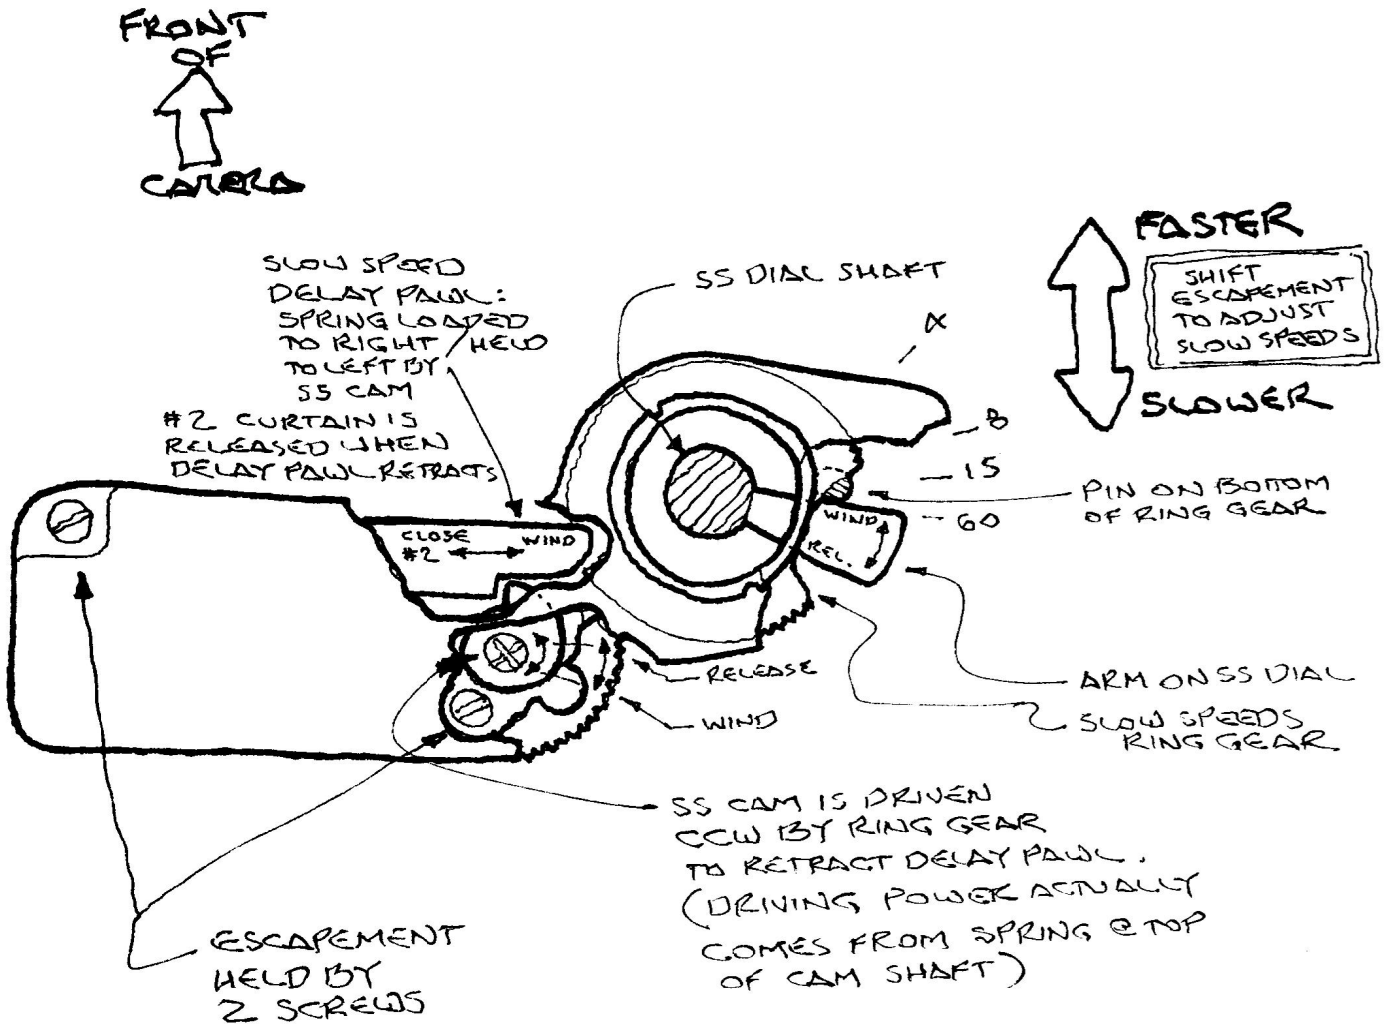 FRONT
OF
CAMERA
FASTER
SHIFT
ESCAPEMENT
TO ADJUST
SLOW SPEEDS
SLOWER
SLOW SPEED
DELAY PAWL:
SPRING LOADED
TO RIGHT / HELD
TO LEFT BY
SS CAM
#2 CURTAIN IS
RELEASED WHEN
DELAY PAWL RETRACTS
SS DIAL SHAFT
X
B
15
60
PIN ON BOTTOM
OF RING GEAR
CLOSE
#2
WIND
WIND
REL.
RELEASE
WIND
ARM ON SS DIAL
SLOW SPEEDS
RING GEAR
SS CAM IS DRIVEN
CCW BY RING GEAR
TO RETRACT DELAY PAWL.
(DRIVING POWER ACTUALLY
COMES FROM SPRING @ TOP
OF CAM SHAFT)
ESCAPEMENT
HELD BY
2 SCREWS